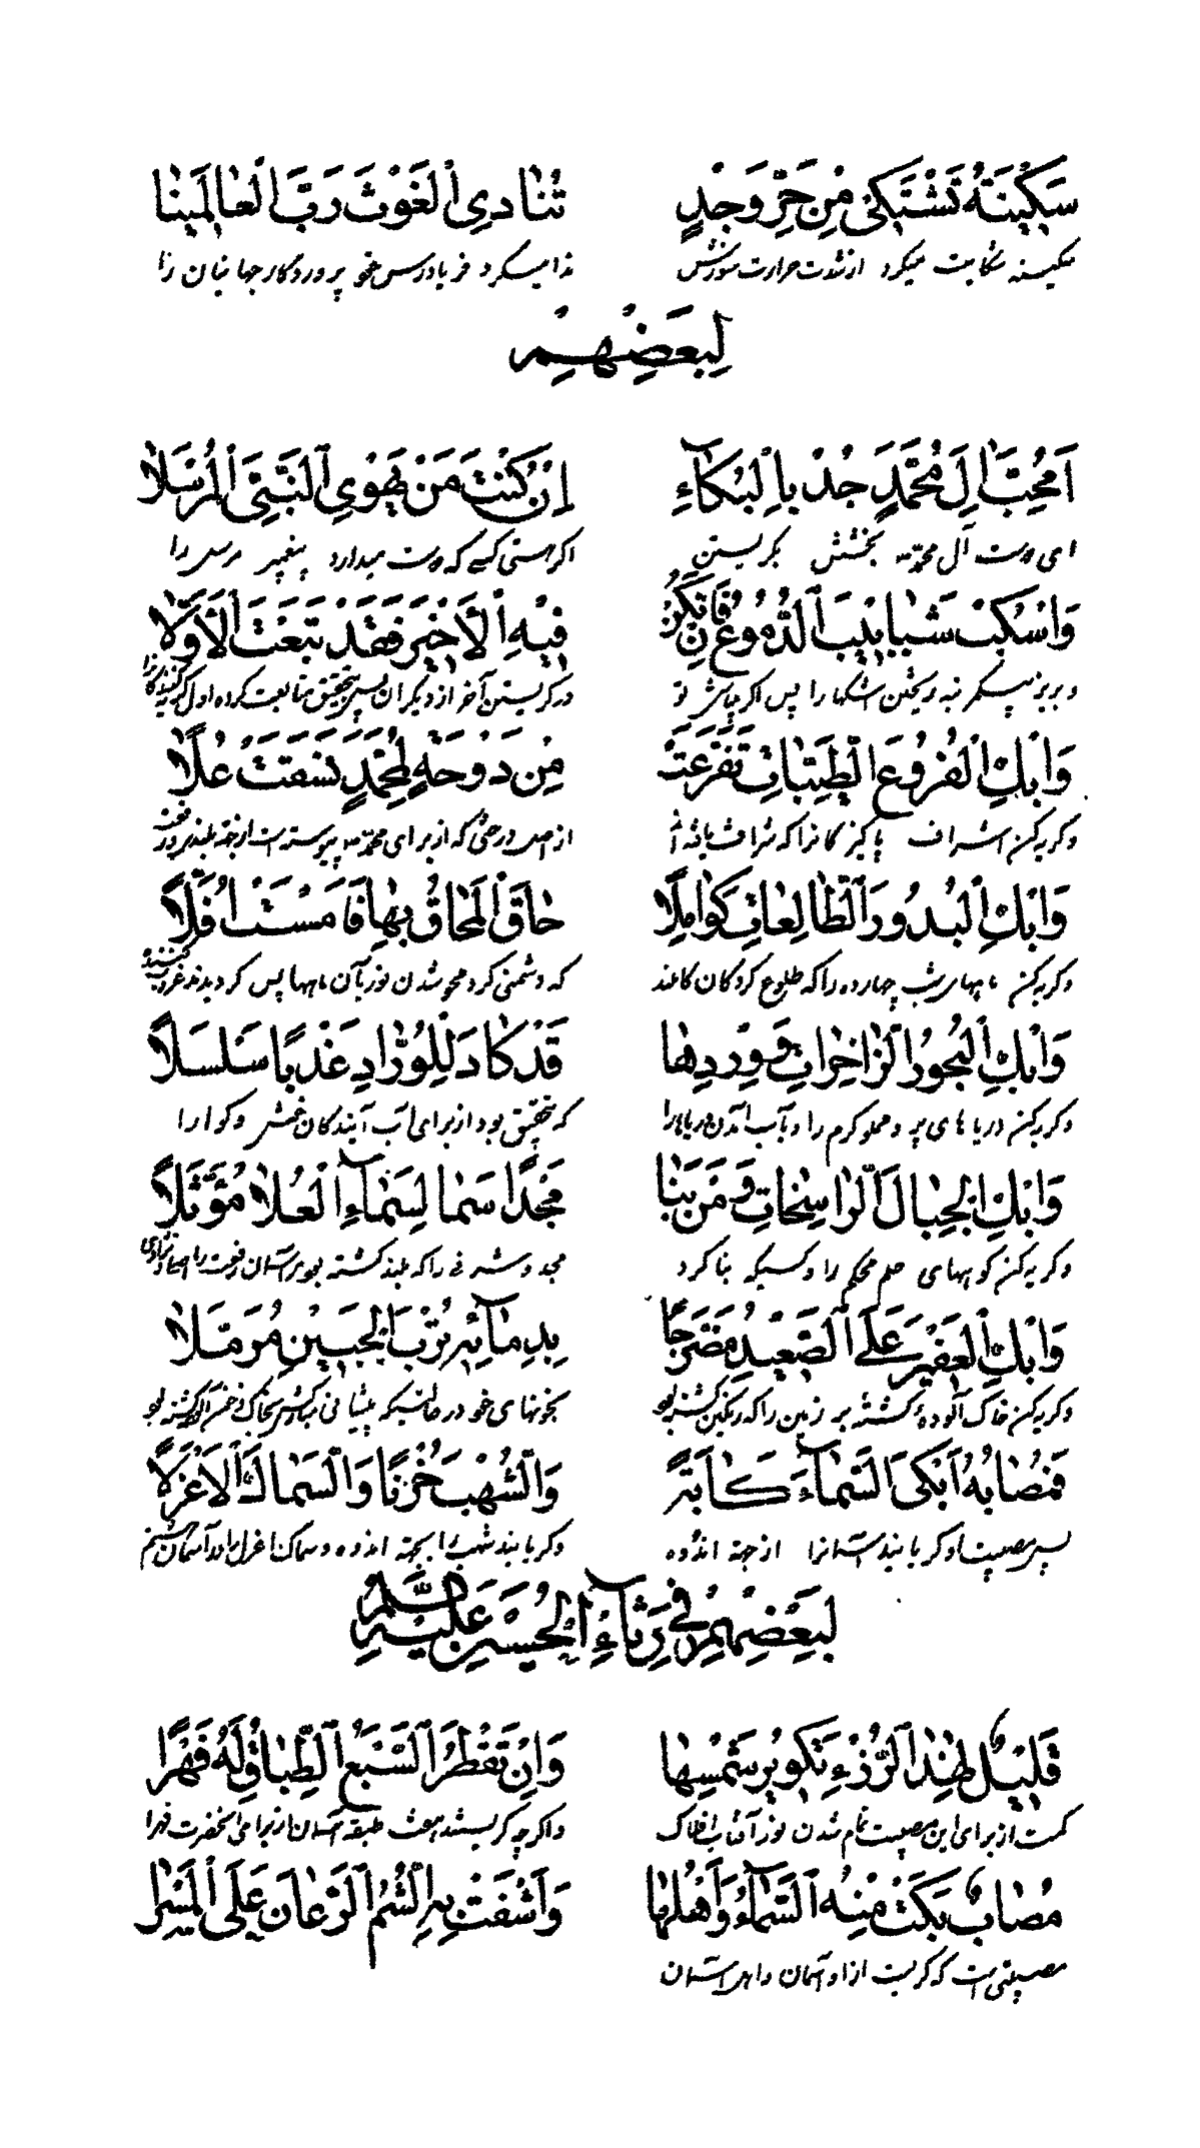 سَكِينَةُ تَشْتَكِي مِنْ حَرِّ وَجْدٍ تُنَادِي الْغَوْثَ رَبَّ الْعَالَمِينَا
سکینه شکایت میکرد از شدت حرارت سوزش ندا میکرد فریادرس خو پروردگار جهانیان را
لِبَعْضِهِمْ
اَمُحِبَّ اٰلِ مُحَمَّدٍ جُدْ بِالْبُكَآءِ اِنْ كُنْتَ مَنْ يَهْوِي النَّبِيَّ الْمُرْسَلَا
ای دوست آل محمد بخشش بگریستن اگر هستی کسیکه دوست میدارد پیغمبر مرسل را
وَاسْكُبْ شَبَابِيبَ الدُّمُوعِ فَاِنْ تَكُنْ فِيهِ الْاَخِيرَ فَقَدْ تَبِعْتَ الْاَوَّلَا
و بریز ریختن اشکها را پس اگر باشی تو در گریستن آخر از دیگران پس بتحقیق متابعت کرده اول
وَابْكِ الْفُرُوعَ الطَّيِّبَاتِ تَفَرَّعَتْ مِنْ دَوْحَةٍ لِمُحَمَّدٍ نَسَقَتْ عُلًا
و گریه کن اشراف پاکیزکانرا که از برای محمد پیوسته است
وَابْكِ الْبُدُورَ الطَّالِعَاتِ كَوَامِلًا حَاقَ الْمَحَاقُ بِهَا فَاَمْسَتْ اُفَّلًا
و گریه کن ماههای شب چهارده را که طلوع کردکان کاملند که دشمنی کرد محو شدن نور بآن ماهها پس کردیدند غروب کننده
وَابْكِ الْبُحُورَ الزَّاخِرَاتِ وَوِرْدِهَا قَدْ كَادَ لِلْوُرَّادِ عَذْبًا سَلْسَلًا
و گریه کن دریاهای پر و مملو کرم را و بآب آمدن دریاها را که بتحقیق بود از برای آب آیندکان خوش و کوارا
وَابْكِ الْجِبَالَ الرَّاسِخَاتِ وَمَنْ بَنَا مَجْدًا سَمَا لِسَمَآءِ الْعُلَا مُؤَثَّلًا
و گریه کن کوههای حلم محکم را و کسیکه بنا کرد مجد و شرفی را که بلند کشته بود بر آسمان رفعت
وَابْكِ الْعَفِيرَ عَلَى الصَّعِيدِ مُضَرَّجًا بِدِمَآئِهِ تُرْبَ الْجَبِينِ مُرَمَّلَا
و گریه کن خاک آلوده کشته بر زمین را که رنگین کشته بود بخونهای خود در حالتیکه پیشانی مبارکش
فَمُصَابُهُ اَبْكَى السَّمَآءَ كَاٰبَةً وَالشُّهْبَ حُزْنًا وَالسِّمَاكَ الْاَعْزَلَا
پس مصیبت او گریانید آسمانرا از جهة اندوه و گریانید شهب را بجهة اندوه و سماک اعزل را
لِبَعْضِهِمْ فِي رِثَآءِ الْحُسَيْنِ عَلَيْهِ السَّلَامُ
قَلِيلٌ لِهٰذَا الرُّزْءِ تَكْوِيرُ شَمْسِهَا وَاِنْ تَفْطُرَ السَّبْعُ الطِّبَاقُ لَهُ قَهْرًا
کمست از برای این مصیبت تمام شدن نور آفتاب افلاک و اگرچه هفت طبقه آسمان از برای آنحضرت قهرا
مُصَابٌ بَكَتْ مِنْهُ السَّمَآءُ وَاَهْلُهَا وَاَشْفَتْ بِهِ الشُّمُّ الرَّعَانِ عَلَى الْمَسْرَا
مصیبتی است که گریست از او آسمان و اهل آسمان